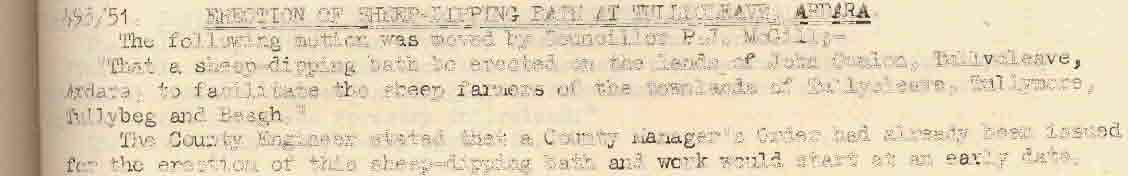 495/51. ERECTION OF SHEEP-DIPPING BATH AT TULLYCLEAVE, ARDARA.
The following motion was moved by Councillor P.J. McGill;-
"That a sheep-dipping bath be erected on the lands of John Conlon, Tullycleave,
Ardara, to facilitate the sheep farmers of the townlands of Tullycleave, Tullymore,
Tullybeg and Beagh."
The County Engineer stated that a County Manager's Order had already been issued
for the erection of this sheep-dipping bath and work would start at an early date.